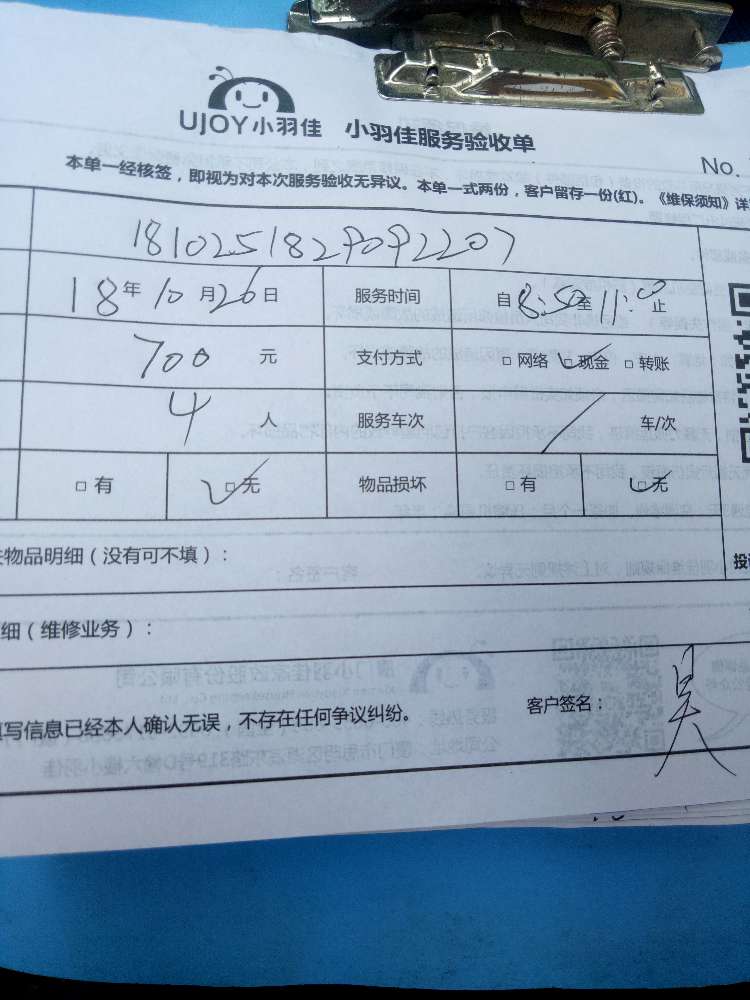 UJOY小羽佳 小羽佳服务验收单
No.
本单一经核签，即视为对本次服务验收无异议。本单一式两份，客户留存一份(红)。《维保须知》详
1810251829092207
18年10月26日 服务时间 自8:50至11:00止
700元 支付方式 □网络 ☑现金 □转账
4人 服务车次 / 车/次
□有 ☑无 物品损坏 □有 ☑无
物品明细（没有可不填）：
投
细（维修业务）：
填写信息已经本人确认无误，不存在任何争议纠纷。 客户签名：吴